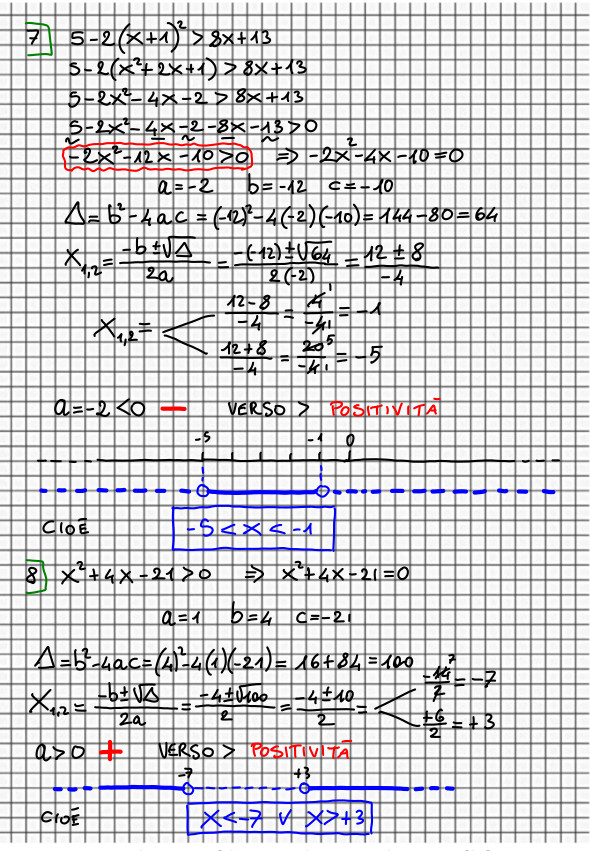 7 5-2(x+1)² > 8x+13
5-2(x²+2x+1) > 8x+13
5-2x²-4x-2 > 8x+13
5-2x²-4x-2-8x-13 > 0
-2x²-12x-10 > 0 ⇒ -2x²-4x-10=0
a=-2 b=-12 c=-10
Δ= b²-4ac = (-12)²-4(-2)(-10) = 144-80 = 64
X₁,₂ = (-b±√Δ)/2a = (-(-12)±√64)/2(-2) = (12±8)/-4
X₁,₂ = (12-8)/-4 = 4/-4 1 1 = -1
(12+8)/-4 = 20/-4 5 1 = -5
a=-2<0 − VERSO > POSITIVITÀ
-5 -1 0
CIOÈ -5 < X < -1
8 x²+4x-21>0 ⇒ x²+4x-21=0
a=1 b=4 c=-21
Δ=b²-4ac=(4)²-4(1)(-21)= 16+84 =100
X₁,₂ = (-b±√Δ)/2a = (-4±√100)/2 = (-4±10)/2 = -14/2 7 = -7
+6/2 = +3
a>0 + VERSO > POSITIVITÀ
-7 +3
CIOÈ X<-7 ∨ X>+3